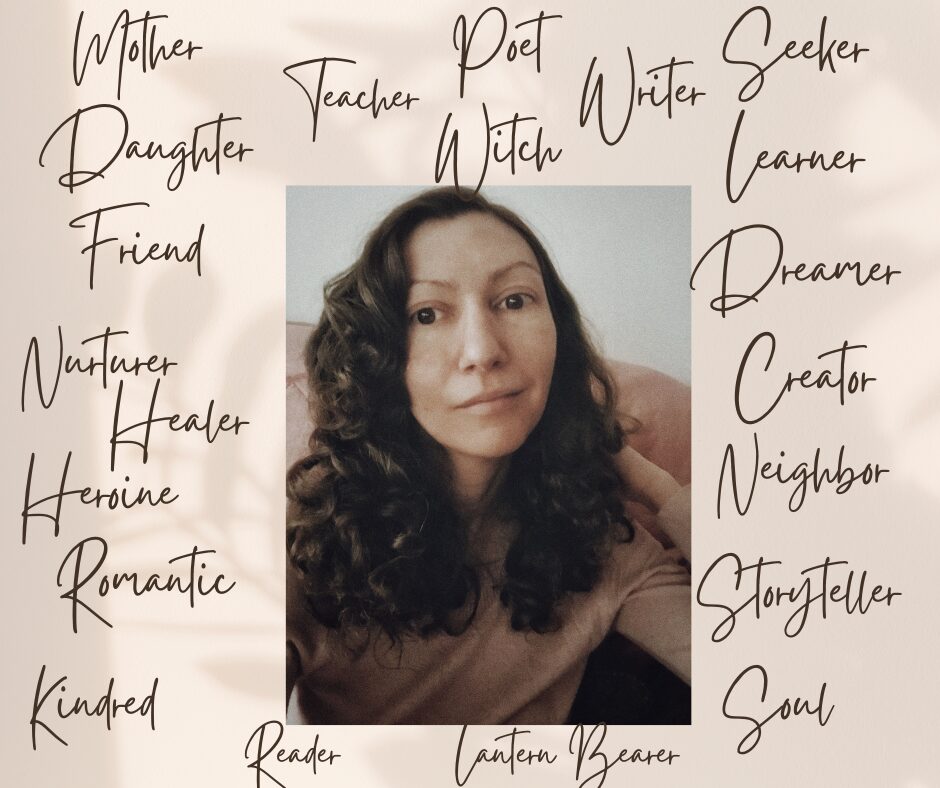 Mother
Poet
Seeker
Teacher
Writer
Daughter
Witch
Learner
Friend
Dreamer
Nurturer
Creator
Healer
Neighbor
Heroine
Romantic
Storyteller
Kindred
Soul
Reader
Lantern Bearer